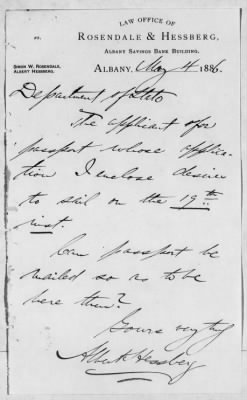 LAW OFFICE OF
ROSENDALE & HESSBERG,
ALBANY SAVINGS BANK BUILDING.
SIMON W. ROSENDALE,
ALBERT HESSBERG.
ALBANY, May 14 1886.
Department of State
The applicant for
passport whose applica-
tion I enclose desires
to sail on the 19th
inst.
Can passport be
mailed so as to be
here then?
Yours very try
Albert Hessberg